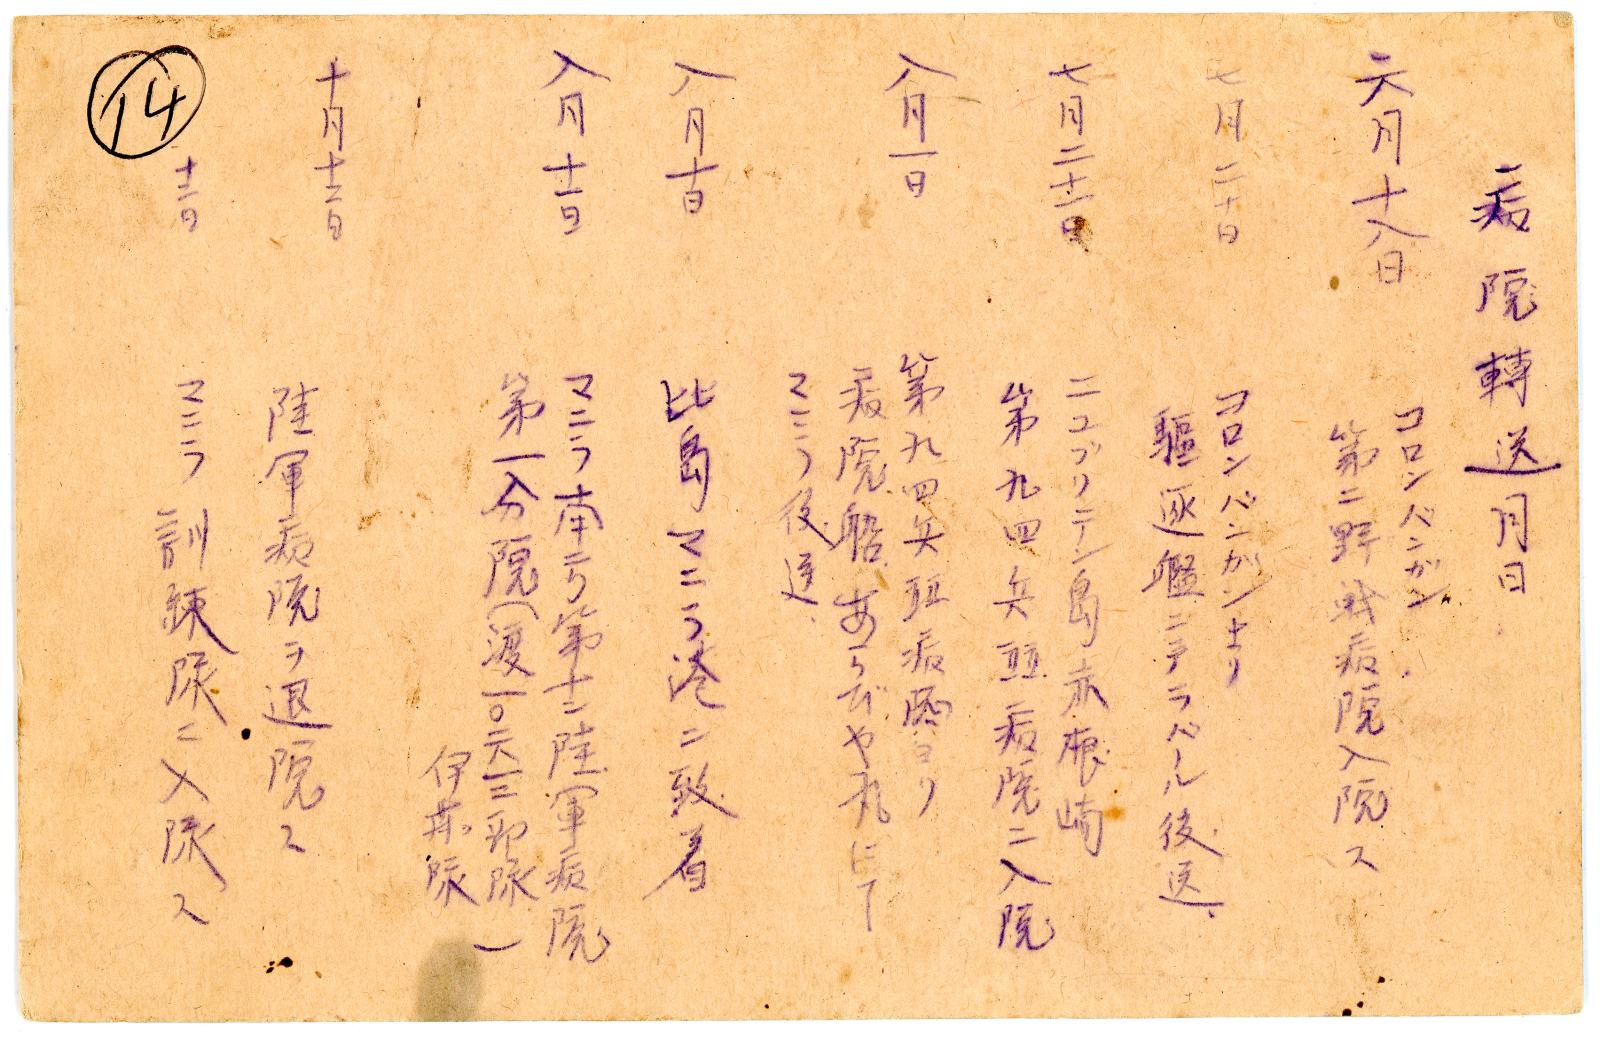 病院轉送月日
六月十八日
コロンバンガン
第二野戦病院入院ス
七月二十日
コロンバンガンより
驅逐艦ニテラバール後送
七月二十一日
ニユブリテン島赤根崎
第九四兵站病院ニ入院
八月一日
第九四兵站病院ヨリ
病院船あらびや丸にて
マニラ後送
八月十日
比島マニラ港ニ致着
八月十一日
マニラ市ニ第十二陸軍病院
第一分院(渡一〇六一三部隊)
伊藤隊
十月十三日
陸軍病院ヲ退院ス
十三日
マニラ訓練隊ニ入隊ス
14